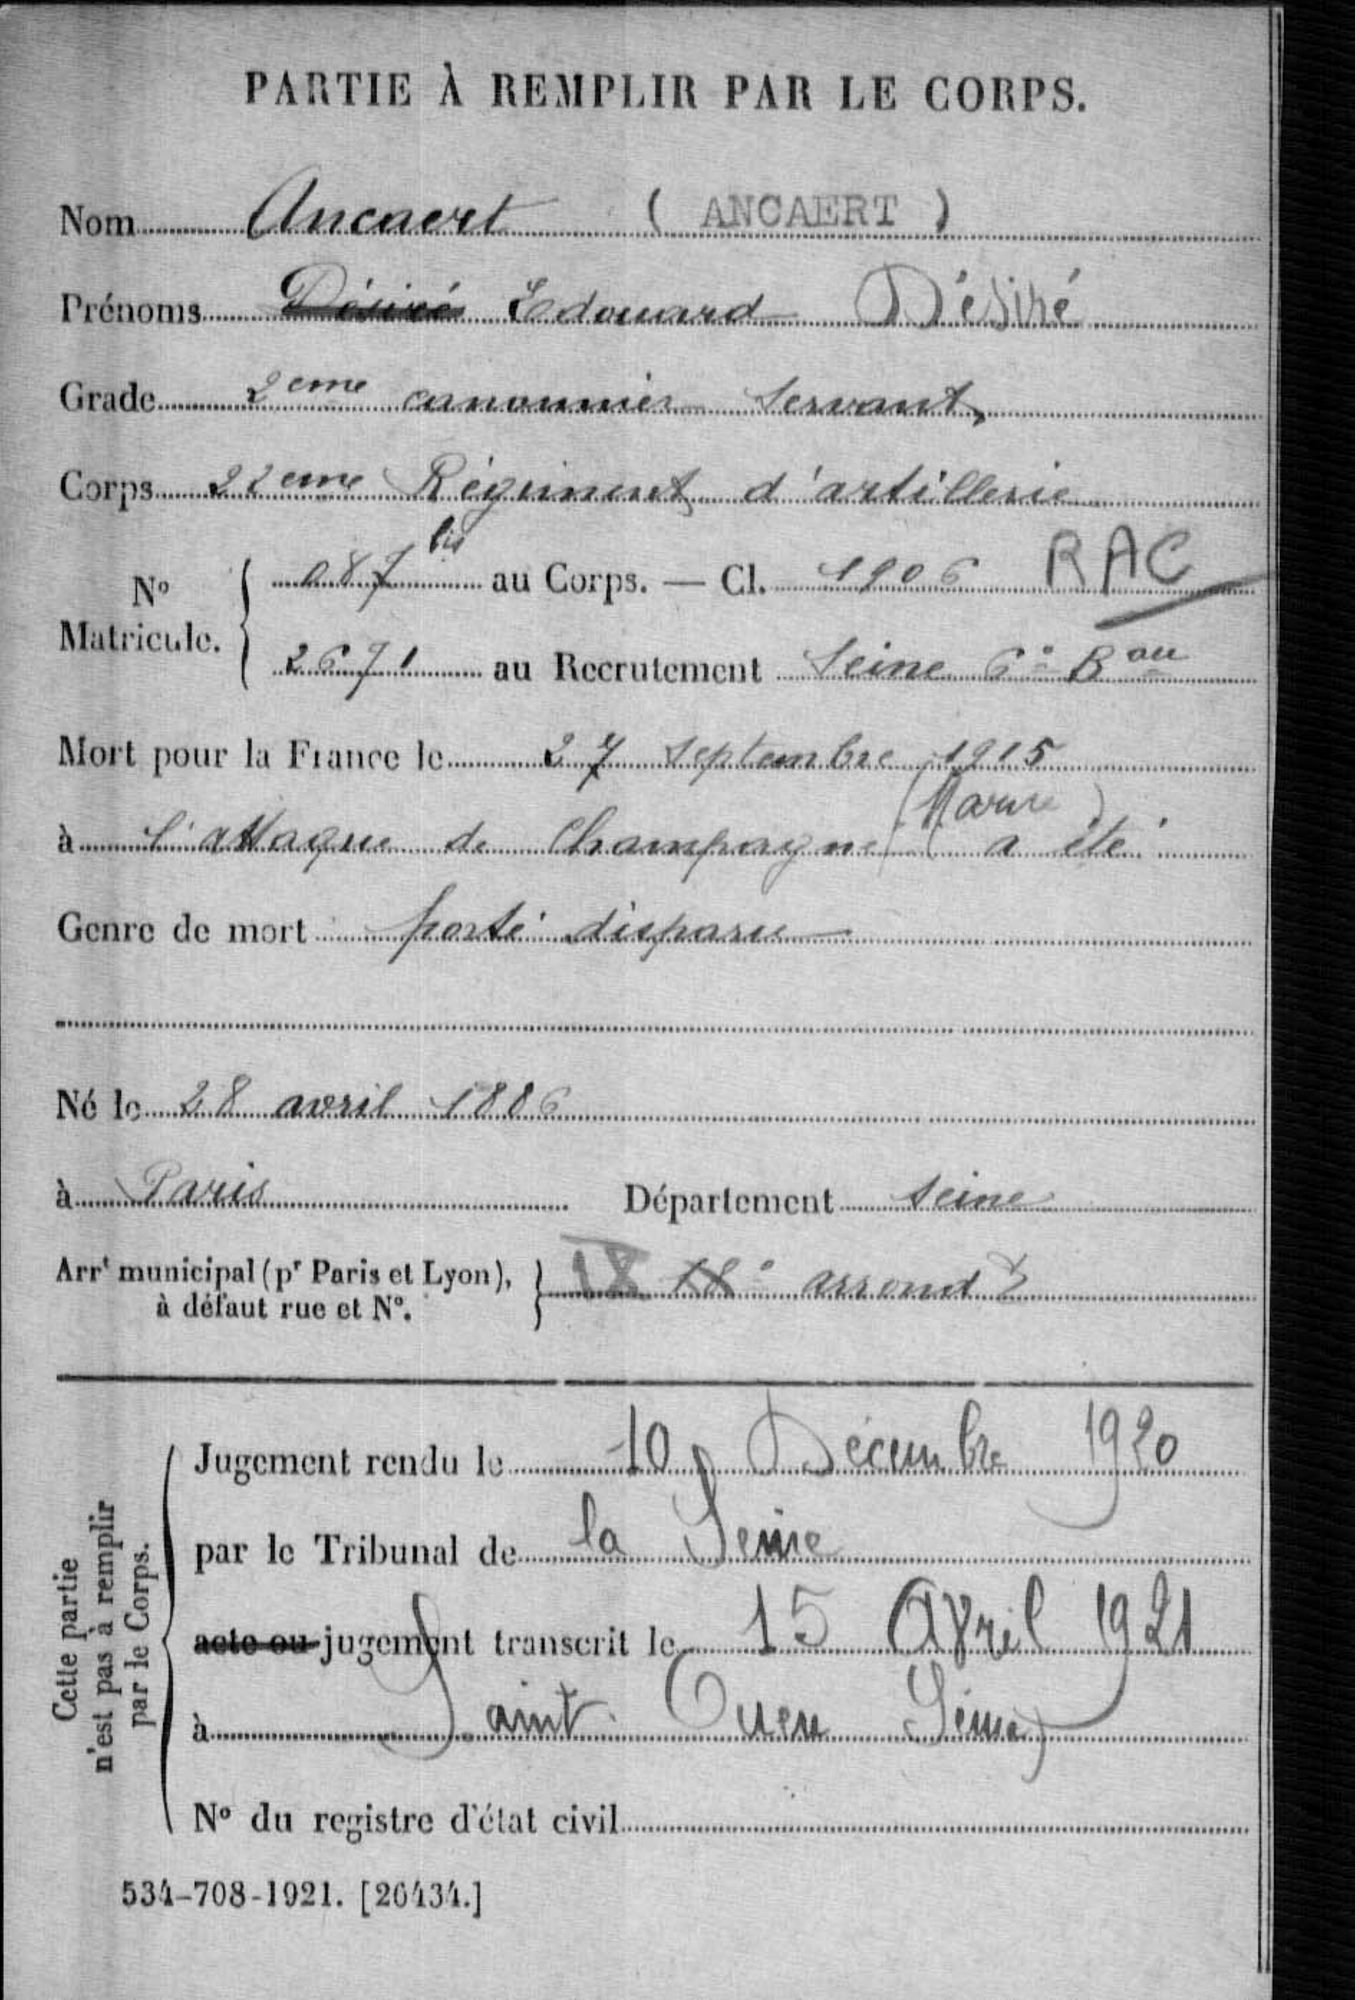 PARTIE À REMPLIR PAR LE CORPS.
Nom Ancaert ( ANCAERT )
Prénoms Désiré Edouard Désiré
Grade 2eme canonnier servant
Corps 22eme Régiment d'artillerie
N° Matricule. 087 bis au Corps. — Cl. 1906 RAC
2671 au Recrutement Seine 6° Bau
Mort pour la France le 27 septembre 1915
à l'attaque de Champagne (Marne) a été
Genre de mort porté disparu
Né le 28 avril 1886
à Paris Département Seine
Arrt municipal (pr Paris et Lyon), à défaut rue et N°. IX arrondt
Cette partie n'est pas à remplir par le Corps.
Jugement rendu le 10 Décembre 1920
par le Tribunal de la Seine
acte ou jugement transcrit le 15 Avril 1921
à Saint Ouen (Seine)
N° du registre d'état civil
534-708-1921. [26434.]